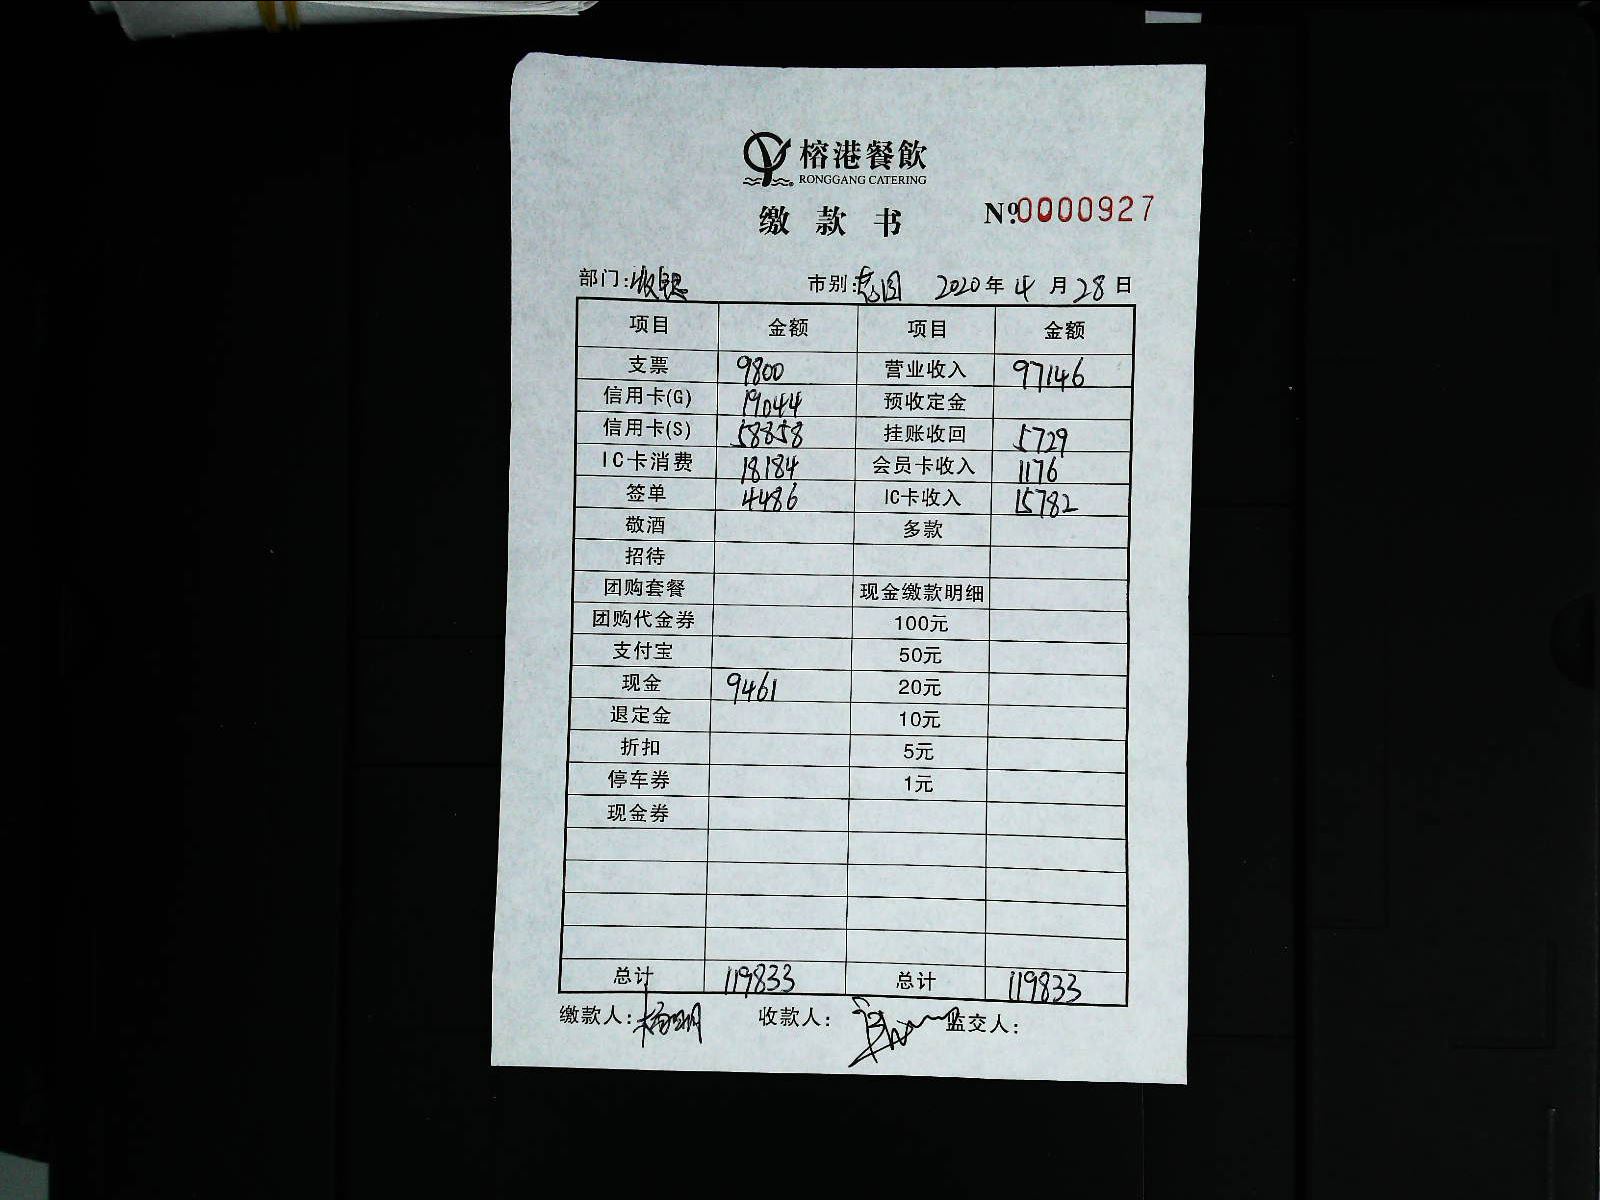 榕港餐飲
RONGGANG CATERING
缴款书 №0000927
部门:收银 市别: 2020年4月28日
项目 金额 项目 金额
支票 9800 营业收入 97146
信用卡(G) 19044 预收定金
信用卡(S) 58858 挂账收回 5729
IC卡消费 18184 会员卡收入 1176
签单 4486 IC卡收入 15782
敬酒 多款
招待
团购套餐 现金缴款明细
团购代金券 100元
支付宝 50元
现金 9461 20元
退定金 10元
折扣 5元
停车券 1元
现金券
总计 119833 总计 119833
缴款人: 收款人: 监交人: